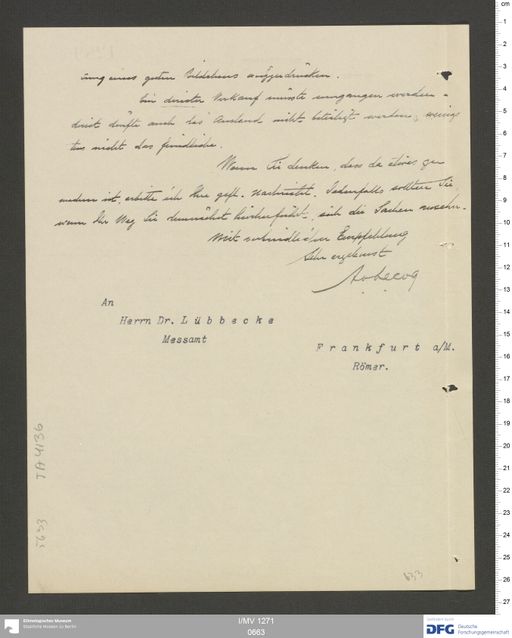 eines guten auszudrücken.
Ein direkter Verkauf müsste umgangen werden -
direkt dürfte auch das Ausland nicht beteiligt werden, wenigs
tens nicht das feindliche.
Wenn Sie denken, dass da etwas zu
machen ist, erbitte ich Ihre gefl. Nachricht. Jedenfalls sollten Sie,
wenn Ihr Weg Sie demnächst hierherführt, sich die Sachen ansehen.
Mit verbindlicher Empfehlung
Sehr ergebenst
An
Herrn Dr. Lübbecke
Messamt
Frankfurt a/M.
Römer.
IA 4136
633
Ethnologisches Museum
Staatliche Museen zu Berlin
I/MV 1271
0663
DFG Deutsche
Forschungsgemeinschaft
cm
1
2
3
4
5
6
7
8
9
10
11
12
13
14
15
16
17
18
19
20
21
22
23
24
25
26
27